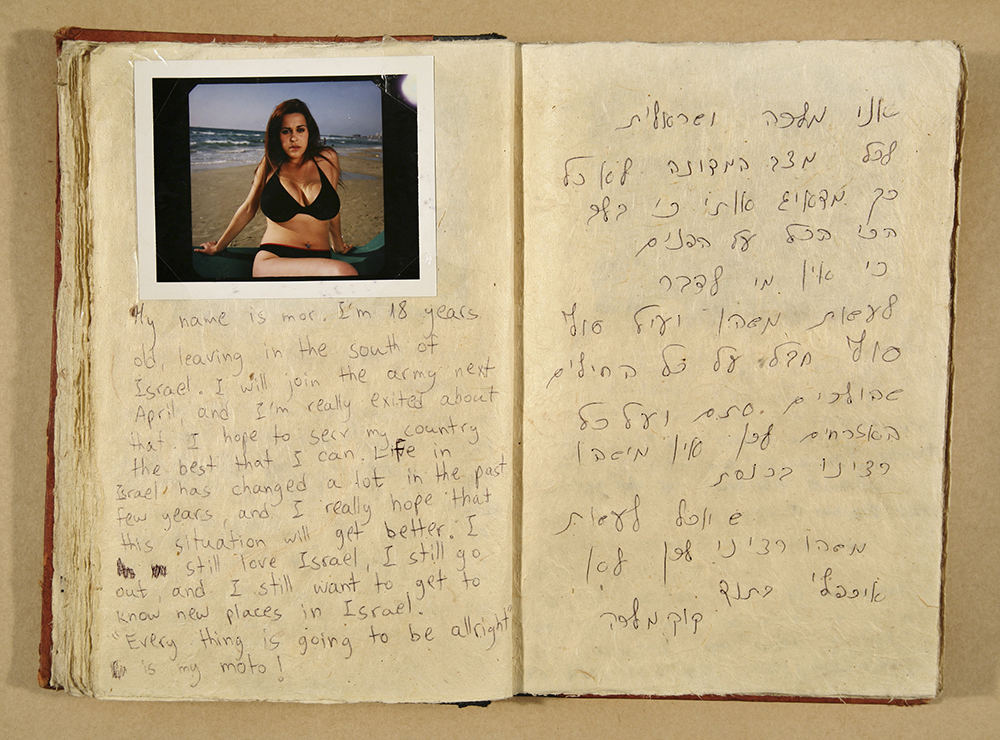 My name is mor. I'm 18 years
old, leaving in the south of
Israel. I will join the army next
April, and I'm really exited about
that. I hope to serv my country
the best that I can. Life in
Israel has changed a lot in the past
few years, and I really hope that
this situation will get better. I
still love Israel, I still go
out, and I still want to get to
know new places in Israel.
"Every thing is going to be allright"
is my moto!
אני מלכה ישראלית
לכל מצב המדינה לא כל
כך מדאיג אותי כי בלב
הכי הכל על הפנים
כי אין מי לדבר
לעשות משהו ועיל סוף
סוף חבל על כל החילים
שהולכים סתם ועל כל
האזרחים לכן אין מישהו
רציני בכנסת
שיוכל לעשות
משהו רציני לכן לא
איכפלי בתוך
קוק מלכה